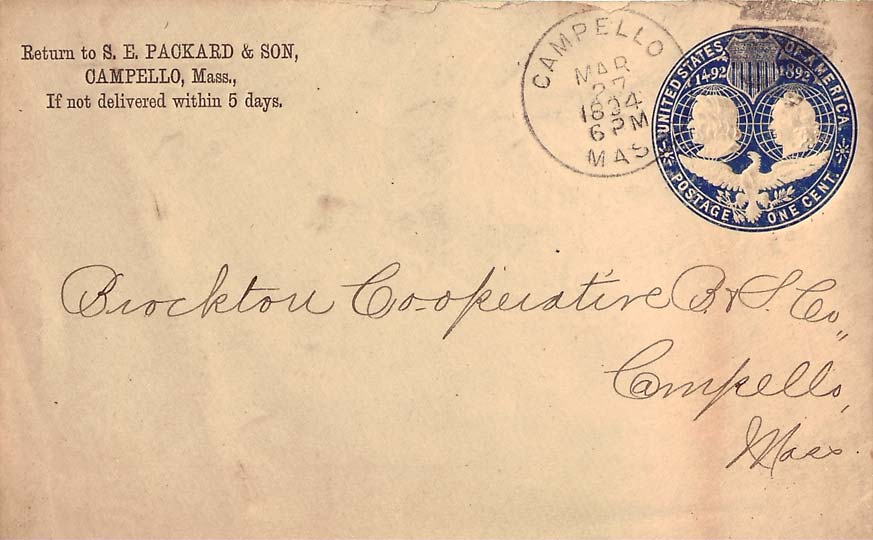 Return to S. E. PACKARD & SON,
CAMPELLO, Mass.,
If not delivered within 5 days.
CAMPELLO
MAR
27
1894
6 PM
MAS
UNITED STATES OF AMERICA.
1492 1892
POSTAGE ONE CENT.
Brockton Co-operative B. & S. Co.,
Campello,
Mass.